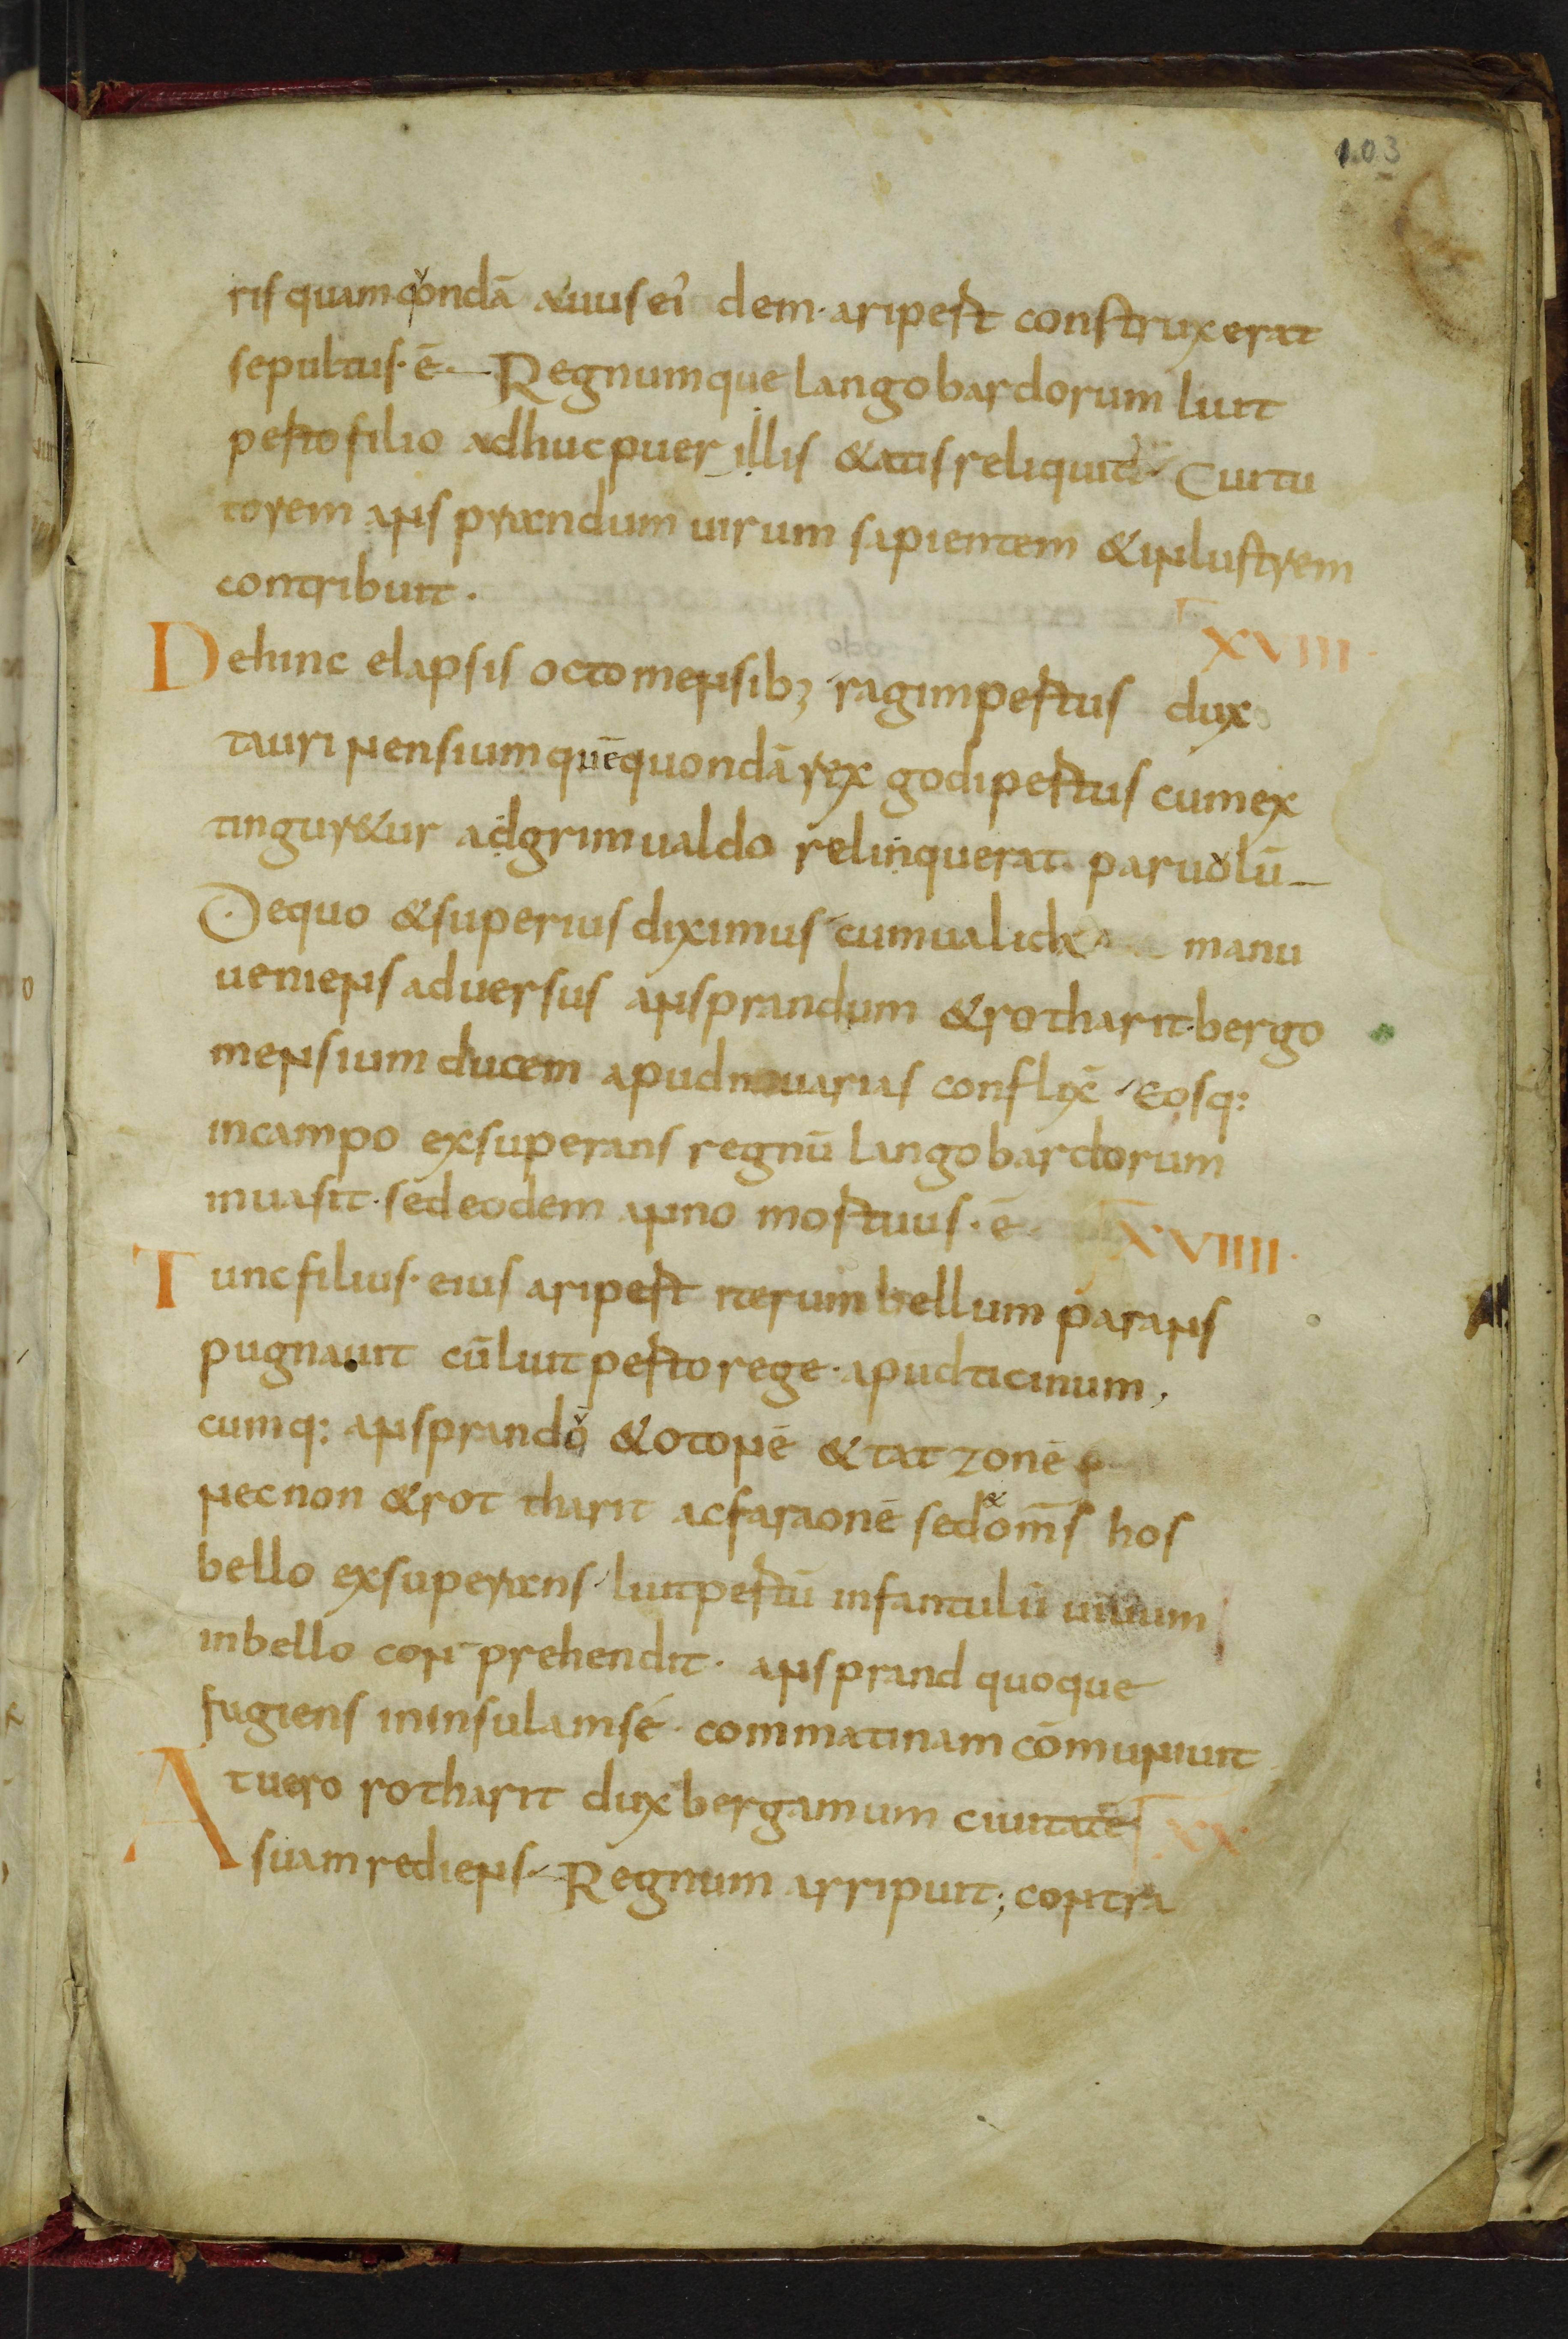 103
ris quam qondā auus eidem · aripert construxerat
sepultus · ē · Regnumque langobardorum liut
perto filio adhuc puerillis &atis reliquit · Cui tu
torem ansprandum uirum sapientem & inlustrem
contribuit ·
XVIII ·
Dehinc elapsis octo mensib; ragimpertus dux
taurinensium quē quondā rex godipertus cum ex
tingur&ur ad grimualdo relinquerat paruolū
De quo & superius diximus cum ualida manu
ueniens aduersus ansprandum & rotharit · bergo
mensium ducem apud nouarias conflix̄ · eosq:
in campo exsuperans regnū langobardorum
inuasit · sed eodem anno mortuus · ē ·
XVIIII ·
Tunc filius · eius aripert iterum bellum parans
pugnauit cū liutperto rege · apud ticinum,
cumq: ansprando & otonē & tatzonē
nec non & rottharit ac faraonē sed & om̄s hos
bello exsuperans · liutpertū infantulū uiuum
in bello conprehendit · ansprand quoque
fugiens in insulam sé · commatinam cōmuniuit
At uero rotharit dux bergamum ciuitatē
XX
suam rediens · Regnum arripuit; contra